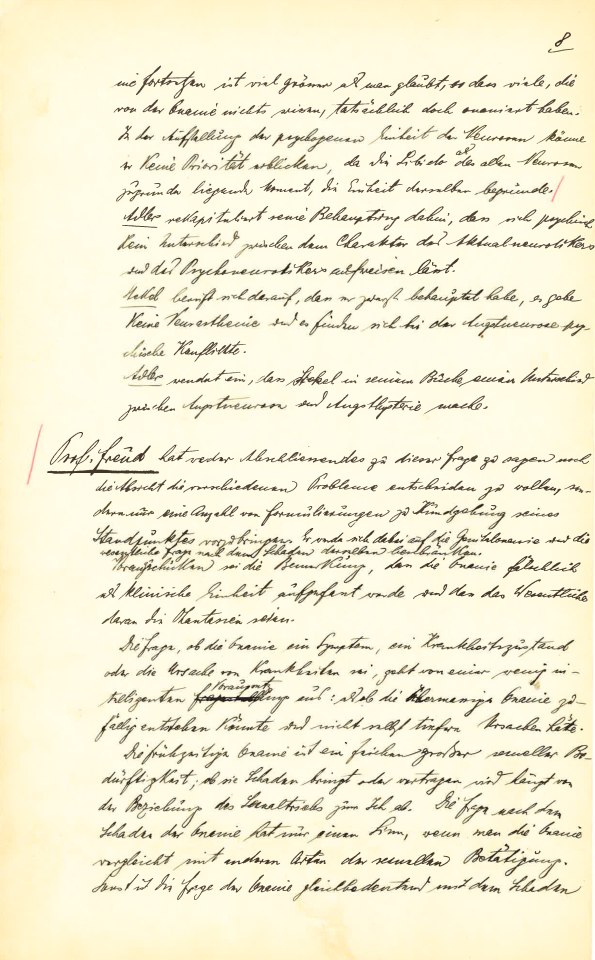 8
nie fortsetzen ist viel grösser als man glaubt, so dass viele, die
von der Onanie nichts wissen, tatsächlich doch onaniert haben.
In der Auffassung der psychogenen Einheit der Neurosen könne
er keine Priorität erblicken, da die Libido als das allen Neurosen
zugrunde liegende Moment, die Einheit derselben begründe.
Adler rekapituliert seine Behauptung dahin, dass sich psychisch
kein Unterschied zwischen dem Charakter des Aktualneurotikers
und des Psychoneurotikers aufweisen lässt.
Stekel beruft sich darauf, dass er zuerst behauptet habe, es gebe
keine Neurasthenie und es finden sich bei der Angstneurose psy-
chische Konflikte.
Adler wendet ein, dass Stekel in seinem Buche einen Unterschied
zwischen Angstneurose und Angsthysterie mache.
Prof. Freud hat weder Abschliessendes zu dieser Frage zu sagen noch
die Absicht die verschiedenen Probleme entscheiden zu wollen, son-
dern nur eine Anzahl von Formulierungen zu Kundgebung seines
Standpunktes vorzubringen. Er werde sich dabei auf die und die
wesentliche Frage nach dem Schaden derselben beschränken.
Vorauszuschicken sei die Bemerkung, dass die Onanie fälschlich
als klinische Einheit aufgefasst werde und dass das Wesentliche
daran die Phantasien seien.
Die Frage, ob die Onanie ein Symptom, ein Krankheitszustand
oder die Ursache von Krankheiten sei, geht von einer wenig in-
telligenten Voraussetzung aus: als ob die übermässige Onanie zu-
fällig entstehen könnte und nicht selbst tiefere Ursachen hätte.
Die frühzeitige Onanie ist ein Zeichen grosser sexueller Be-
dürftigkeit; ob sie Schaden bringt oder vertragen wird hängt von
der Beziehung des Sexualtriebs zum Ich ab. Die Frage nach dem
Schaden der Onanie hat nur einen Sinn, wenn man die Onanie
vergleicht mit anderen Arten der sexuellen Betätigung.
Sonst ist die Frage der Onanie gleichbedeutend mit dem Schaden